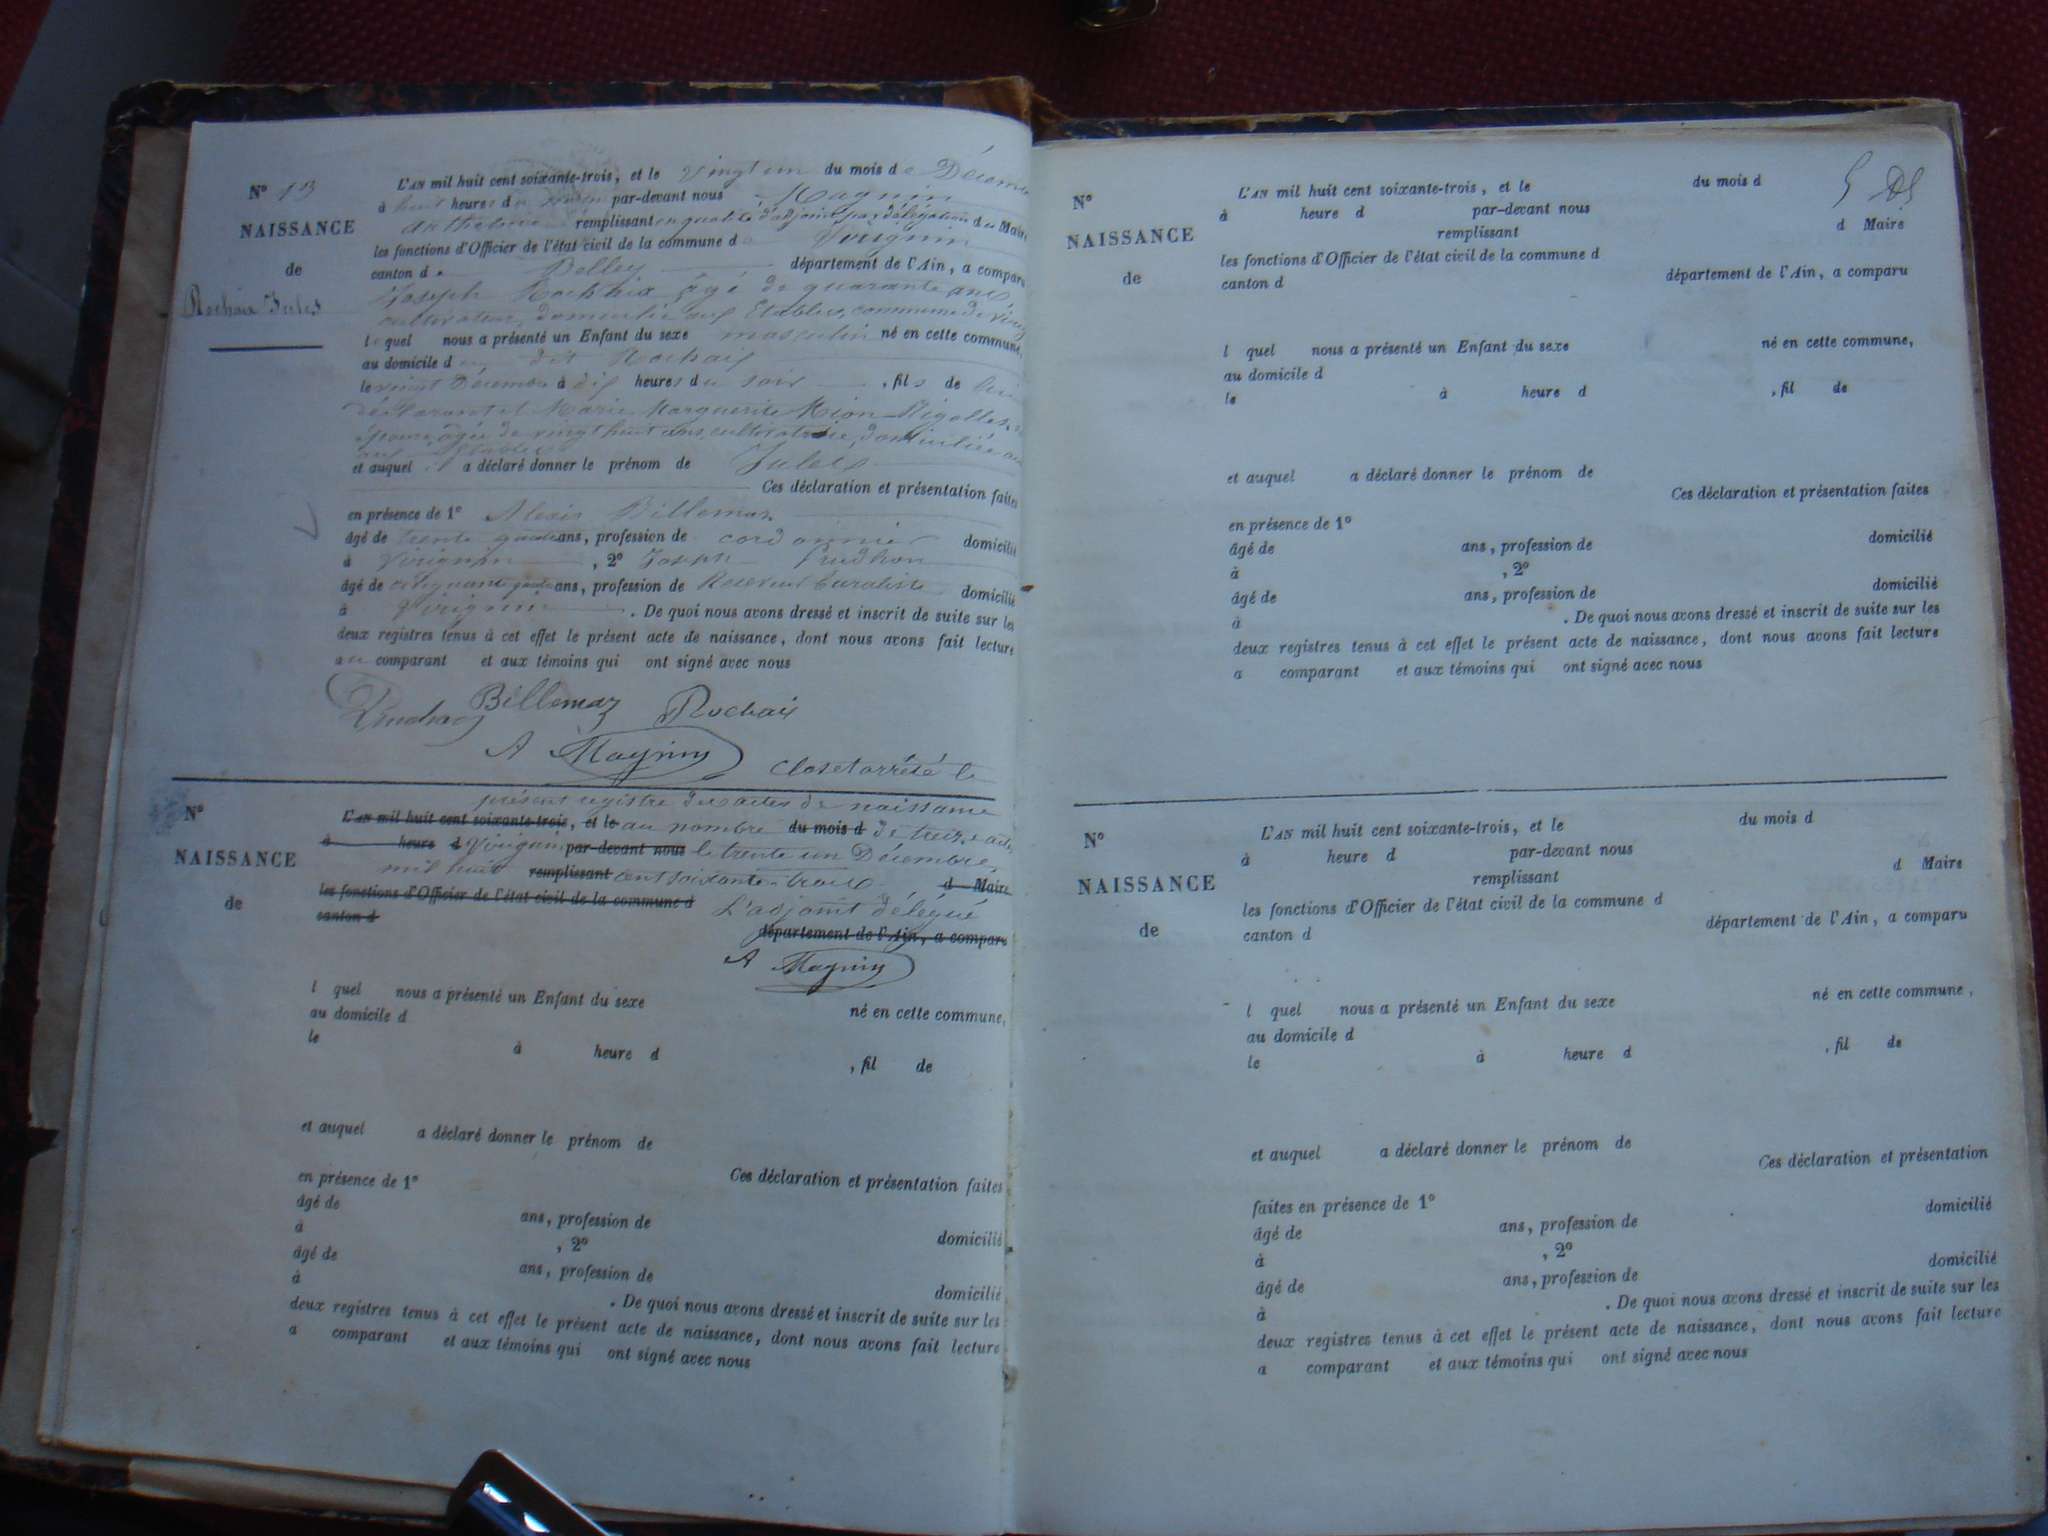 N° 13
NAISSANCE
de
Rochaix Jules
L'AN mil huit cent soixante-trois, et le vingt un du mois de Décembre
à huit heures du par-devant nous Magnin
Anthelme remplissant en qualité d'adjoint par délégation du Maire
les fonctions d'Officier de l'état civil de la commune de Virignin
canton de Belley département de l'Ain, a comparu
Joseph Rochaix âgé de quarante ans
cultivateur, domicilié aux Etables, commune de
lequel nous a présenté un Enfant du sexe masculin né en cette commune,
au domicile du dit Rochaix
le vingt Décembre à dix heures du soir, fils de lui
déclarant et Marie Marguerite Mion-Rigollet, sa
épouse âgée de vingt huit ans, cultivatrice, domiciliée
aux Etables
et auquel il a déclaré donner le prénom de Jules
Ces déclaration et présentation faites
en présence de 1° Alexis Billemaz
âgé de trente quatre ans, profession de cordonnier domicilié
à Virignin, 2° Joseph Prudhon
âgé de cinquante ans, profession de Receveur buraliste domicilié
à Virignin. De quoi nous avons dressé et inscrit de suite sur les
deux registres tenus à cet effet le présent acte de naissance, dont nous avons fait lecture
au comparant et aux témoins qui ont signé avec nous
Prudhon Billemaz Rochaix
A Magnin Clos et arrêté le
N°
NAISSANCE
de
présent registre des actes de naissance
L'AN mil huit cent soixante-trois, et le au nombre du mois d de treize actes
à heure d Virignin par-devant nous le trente un Décembre
mil huit remplissant cent soixante-trois d Maire
les fonctions d'Officier de l'état civil de la commune d L'adjoint délégué
canton d département de l'Ain, a comparu
A Magnin
l quel nous a présenté un Enfant du sexe né en cette commune,
au domicile d
le à heure d , fil de
et auquel a déclaré donner le prénom de
Ces déclaration et présentation faites
en présence de 1°
âgé de ans, profession de domicilié
à , 2°
âgé de ans, profession de domicilié
à . De quoi nous avons dressé et inscrit de suite sur les
deux registres tenus à cet effet le présent acte de naissance, dont nous avons fait lecture
a comparant et aux témoins qui ont signé avec nous
N°
NAISSANCE
de
L'AN mil huit cent soixante-trois, et le du mois d
à heure d par-devant nous
remplissant d Maire
les fonctions d'Officier de l'état civil de la commune d
canton d département de l'Ain, a comparu
l quel nous a présenté un Enfant du sexe né en cette commune,
au domicile d
le à heure d , fil de
et auquel a déclaré donner le prénom de
Ces déclaration et présentation faites
en présence de 1°
âgé de ans, profession de domicilié
à , 2°
âgé de ans, profession de domicilié
à . De quoi nous avons dressé et inscrit de suite sur les
deux registres tenus à cet effet le présent acte de naissance, dont nous avons fait lecture
a comparant et aux témoins qui ont signé avec nous
N°
NAISSANCE
de
L'AN mil huit cent soixante-trois, et le du mois d
à heure d par-devant nous
remplissant d Maire
les fonctions d'Officier de l'état civil de la commune d
canton d département de l'Ain, a comparu
l quel nous a présenté un Enfant du sexe né en cette commune,
au domicile d
le à heure d , fil de
et auquel a déclaré donner le prénom de
Ces déclaration et présentation
faites en présence de 1°
âgé de ans, profession de domicilié
à , 2°
âgé de ans, profession de domicilié
à . De quoi nous avons dressé et inscrit de suite sur les
deux registres tenus à cet effet le présent acte de naissance, dont nous avons fait lecture
a comparant et aux témoins qui ont signé avec nous